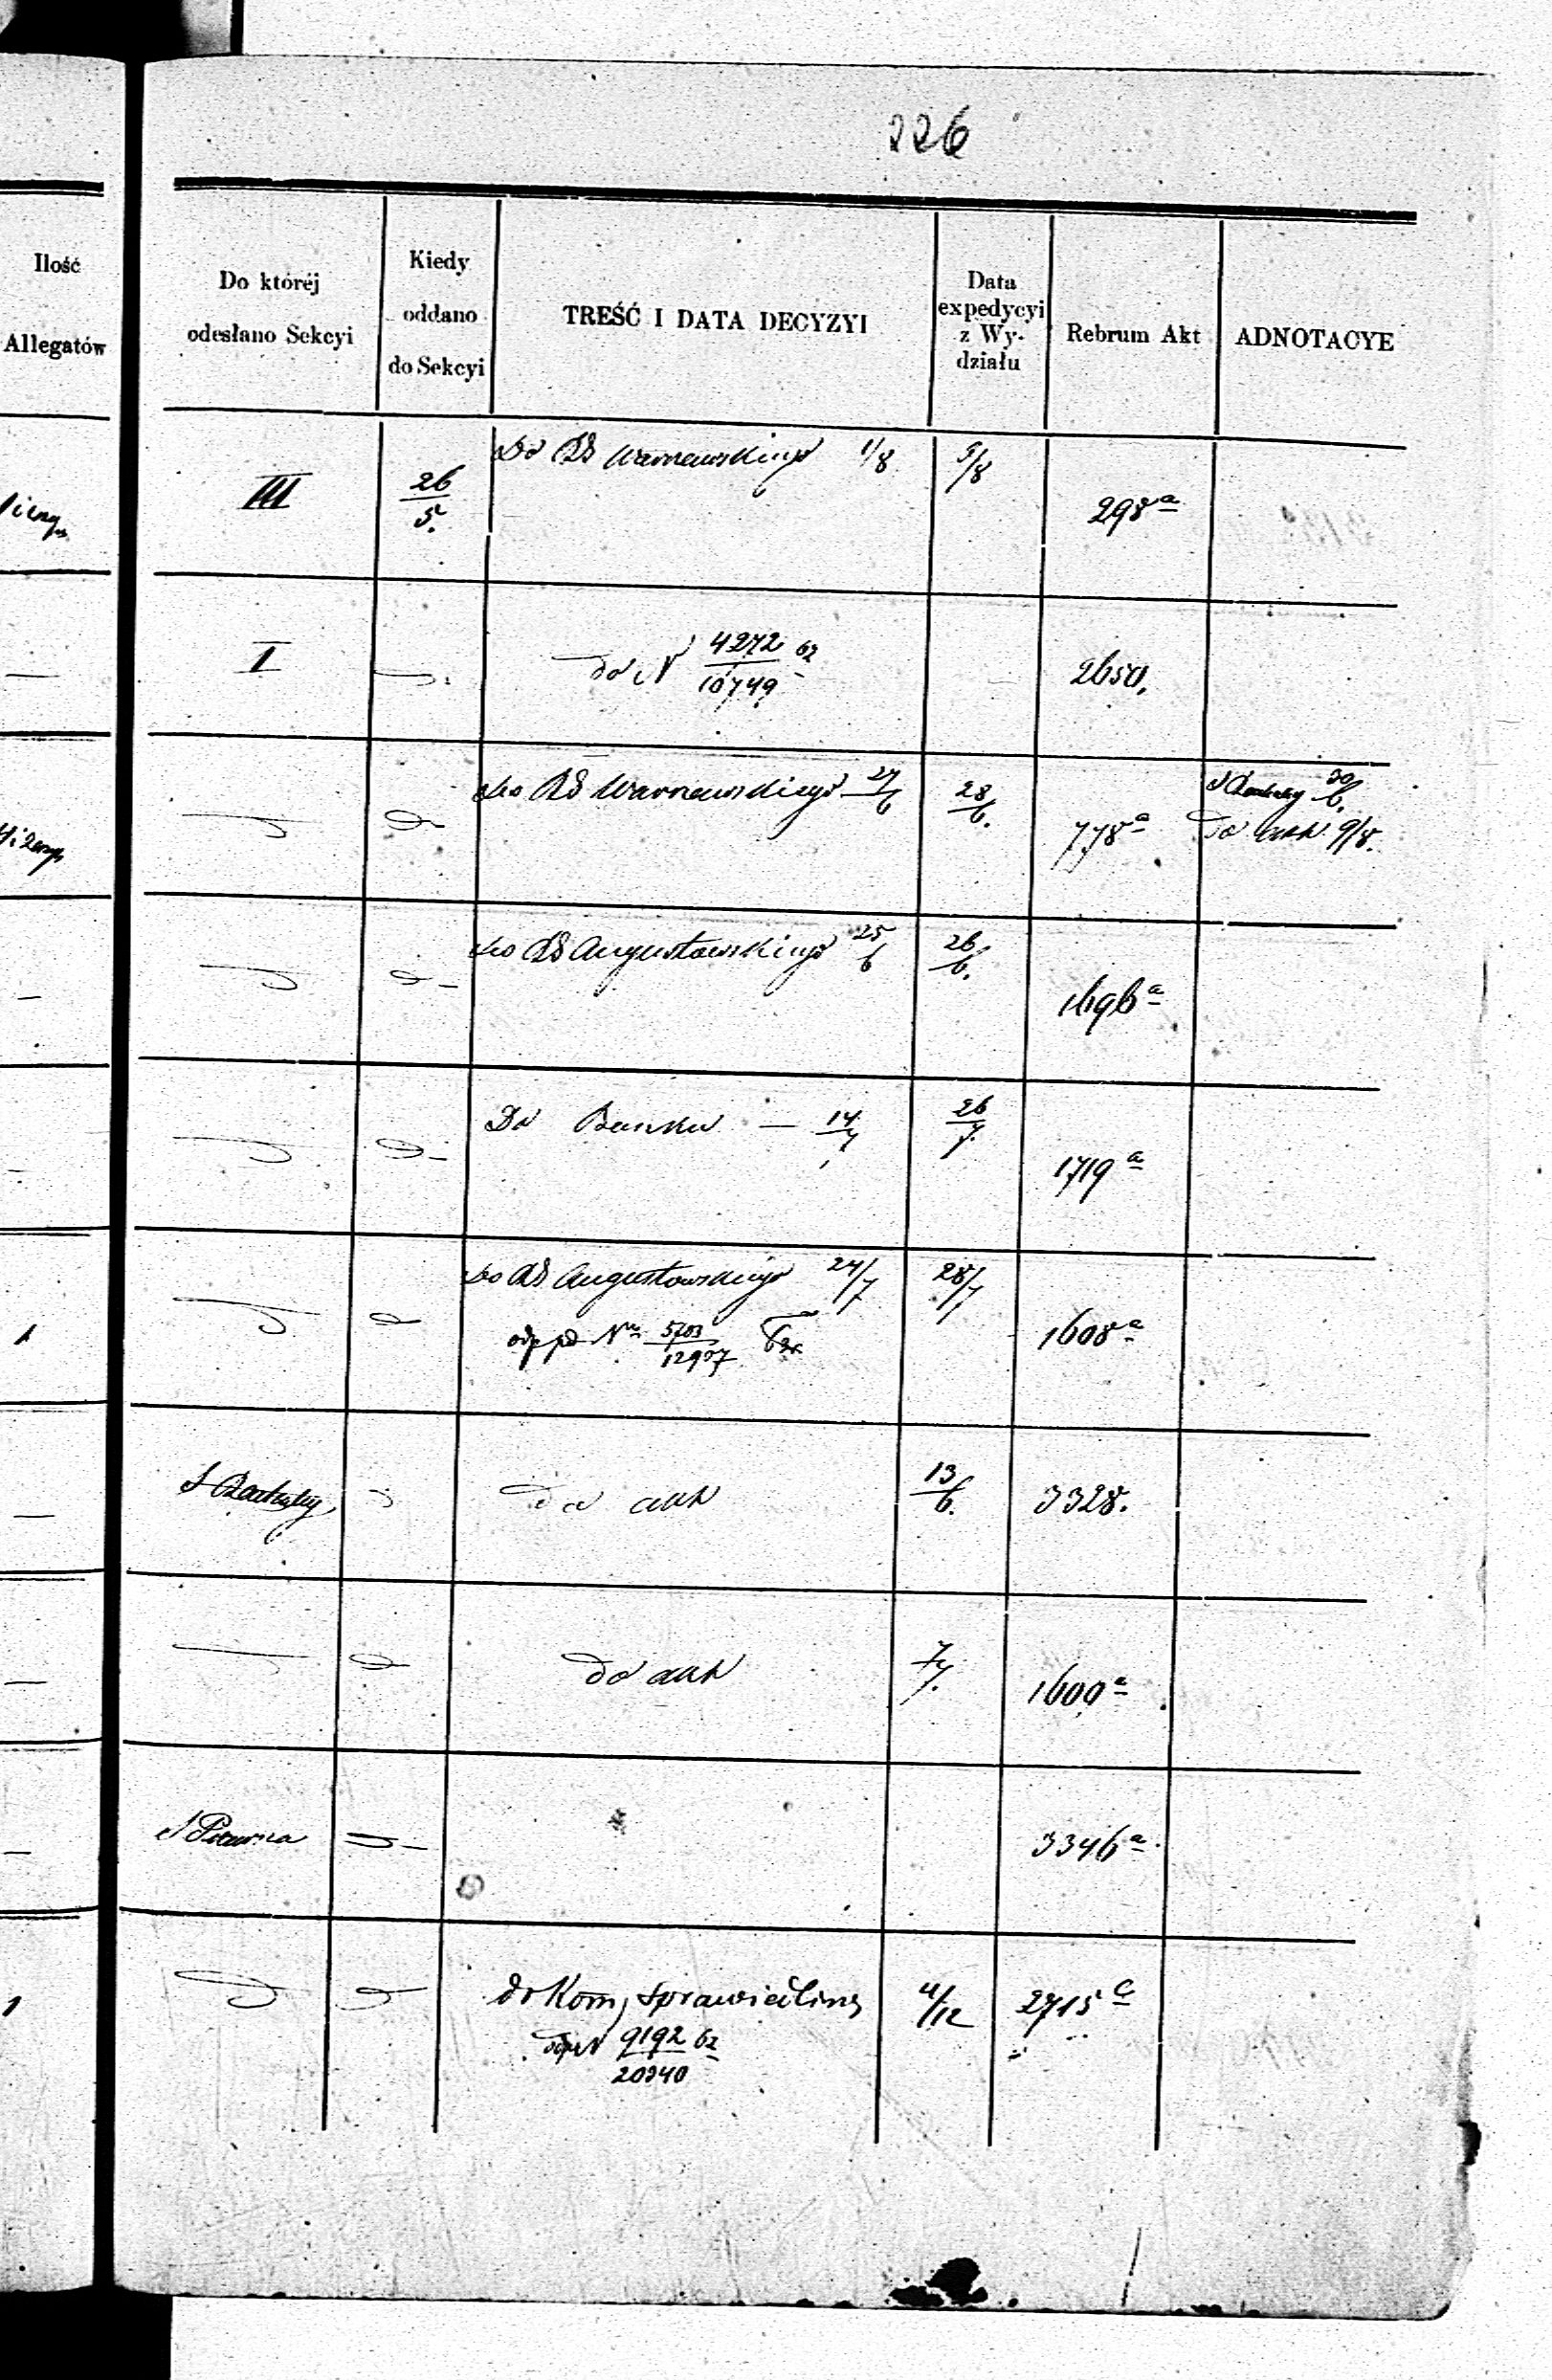 226
Ilość
Allegatów
Do któréj
odesłano Sekcyi
Kiedy
oddano
do Sekcyi
TREŚĆ I DATA DECYZYI
Data
expedycyi
z Wy-
działu
Rebrum Akt
ADNOTACYE
III 26/5. Do RG Warszawskiego 1/8 5/8 298a
I do N 4272/10749 62 2650.
Do RG Warszawskiego 27/6 28/6. 778a 30/6.
do akt 9/8.
Do RG Augustowskiego 25/6 26/6. 1696a
Do Banku — 14/7 26/7. 1719a
Do RG Augustowskiego 24/7 28/7 1608a
odp pod Nm 5703/12937
do akt 13/6. 3328.
do akt 7/7. 1600a
3346a
1 do Kom, Sprawiedliwoś 4/12 2715a
N 9192/20340 62